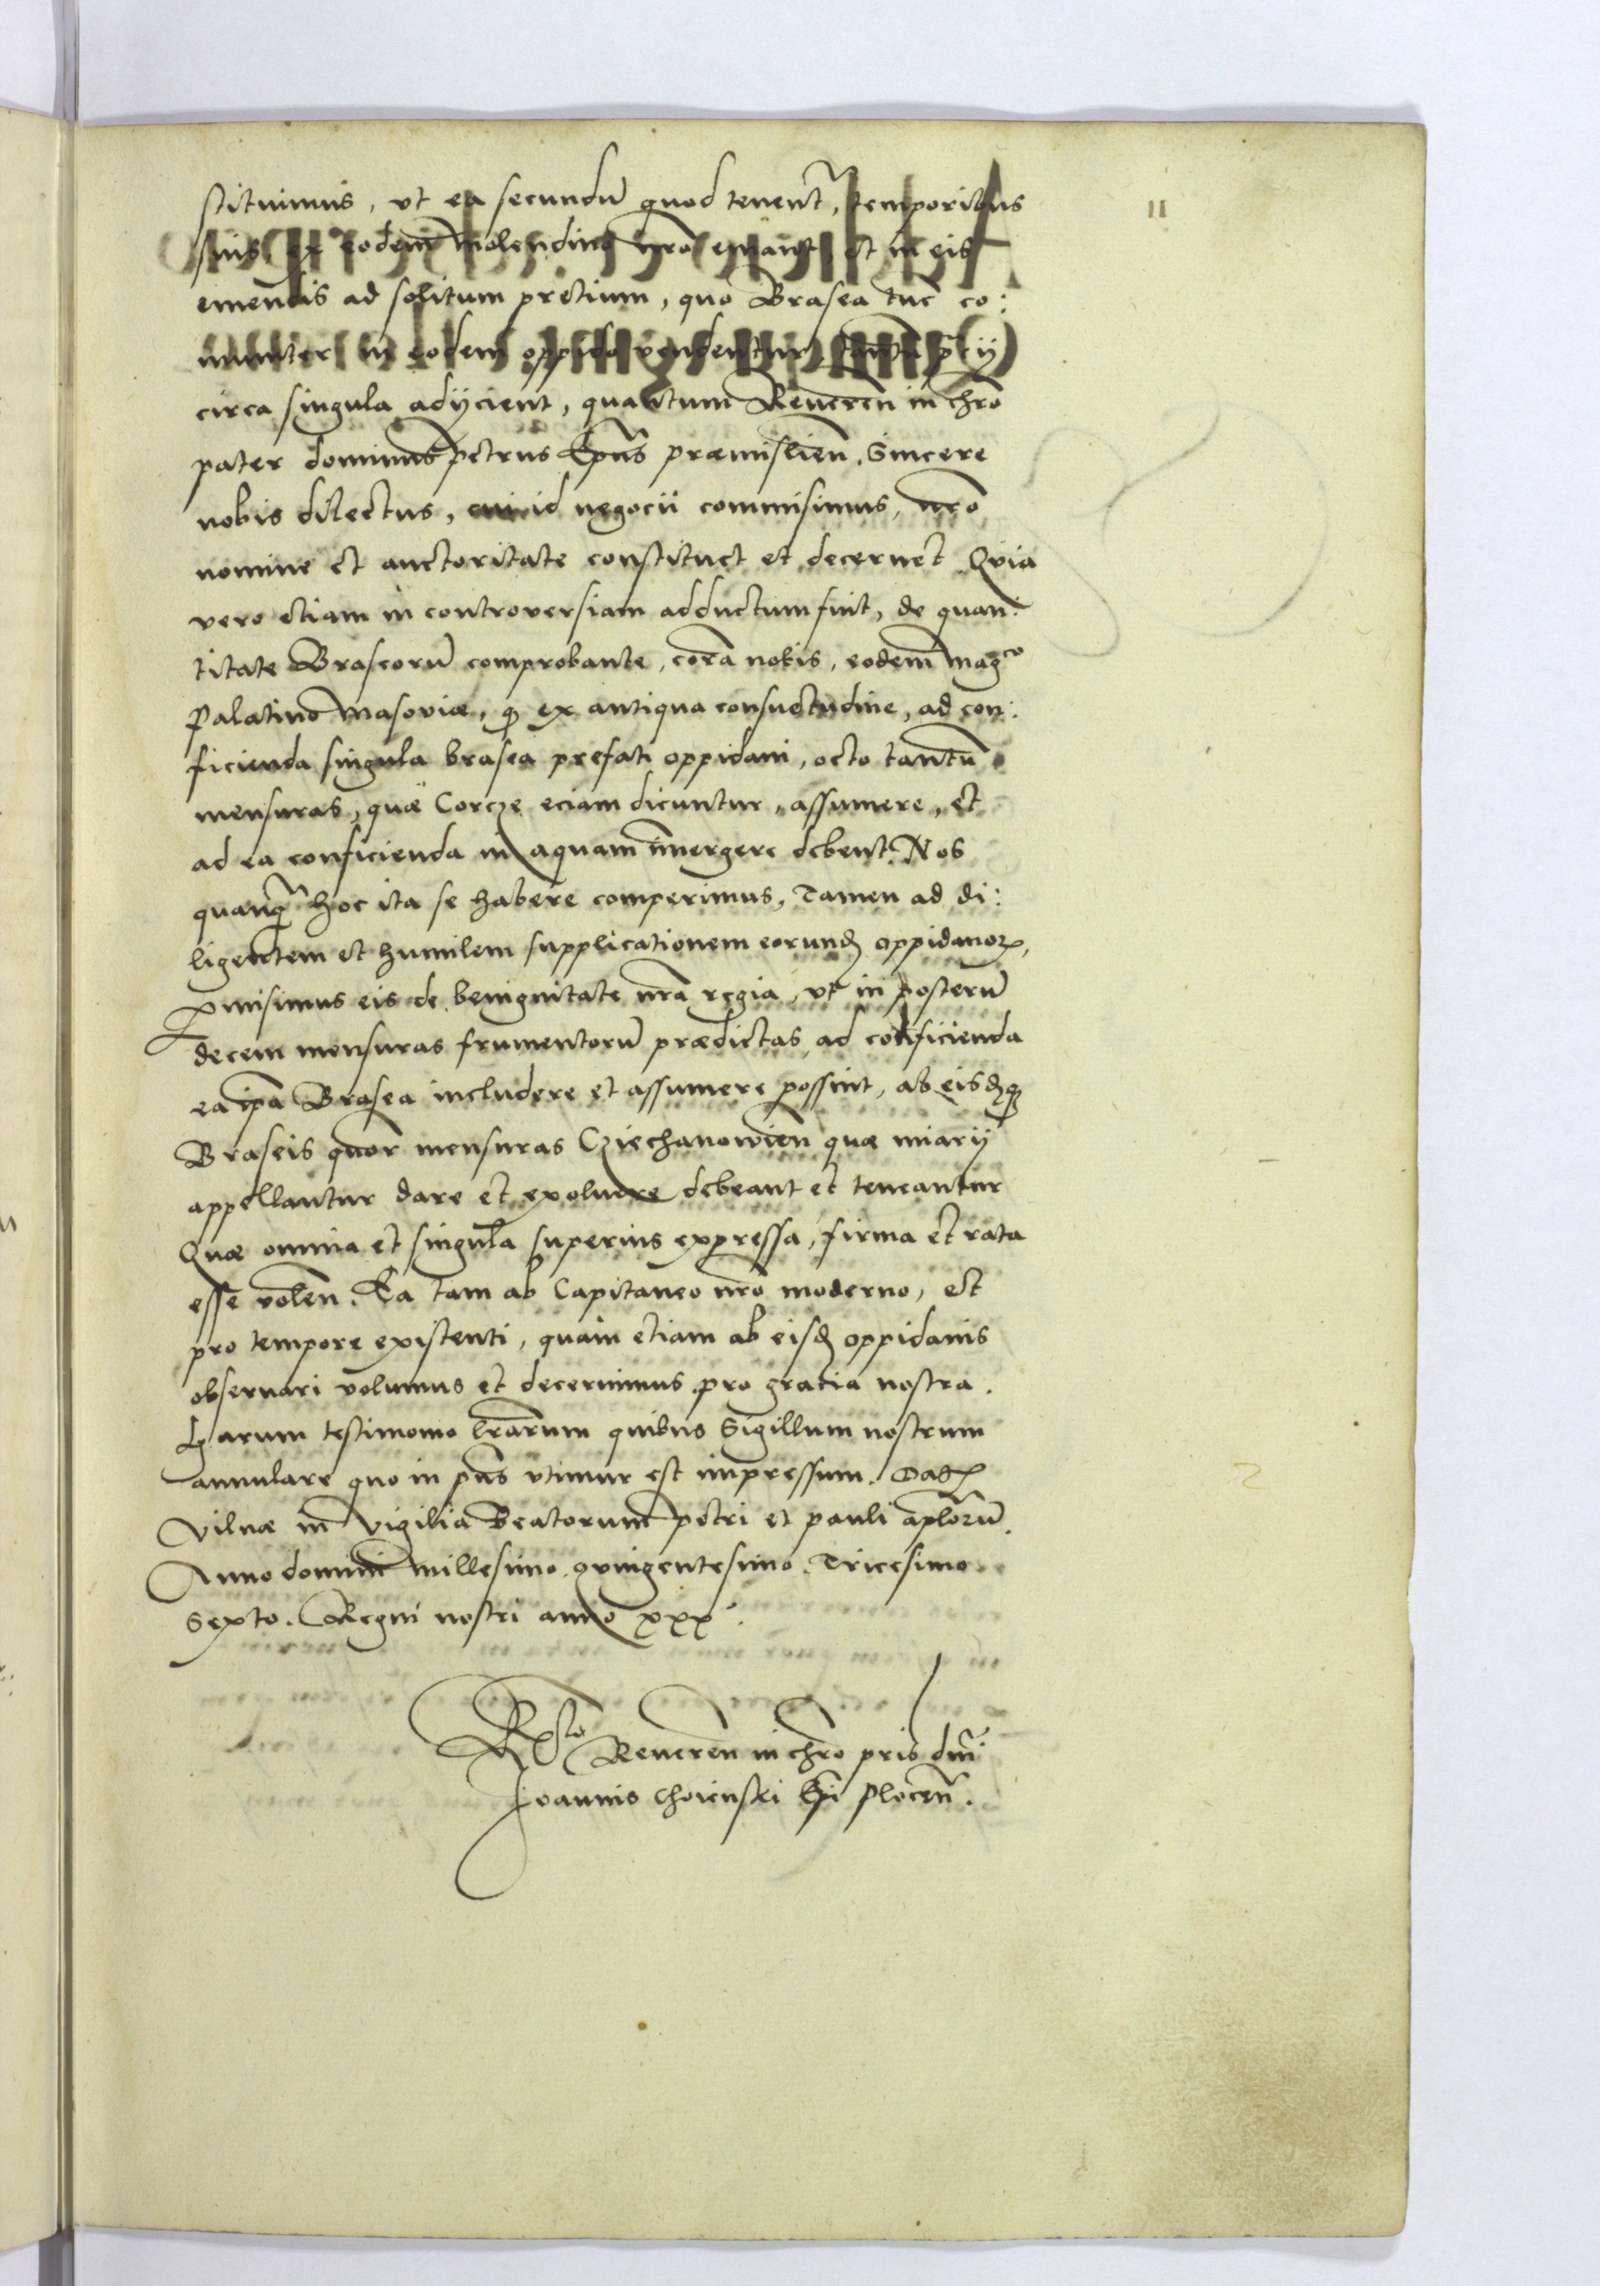 11
stituimus, vt ea secundũ quod tenent̃, temporibus
suis ex eodem molendino nr̃o emant, et in eis
emendis ad solitum pretium, quo Brasea tũc co:
muniter in eodem oppido vendentur, tantũ p̃cij
circa singula adijcient, quantum Reueren̄ in chr̃o
pater dominus petrus Ep̃us præmislien̄. Sincere
nobis dilectus, cui id negocii commisimus, nr̃o
nomine et auctoritate constituet et decernet. Quia
vero etiam in controversiam adductum fuit, de quan:
titate Braseorũ comprobante, corã nobis, eodem mag^co
Palatino Masoviæ, q ex antiqua consuetudine, ad con:
ficienda singula brasea prefati oppidani, octo tantũ
mensuras, quæ Corcze eciam dicuntur, assumere, et
ad ea conficienda in aquam im̃ergere debent. Nos
quanq̃ hoc ita se habere comperimus, Tamen ad di:
ligentem et humilem supplicationem eorund̃ oppidanoꝝ,
ꝑmisimus eis de benignitate nr̃a regia, vt in posterũ
decem mensuras frumentorũ prædictas ad conficienda
ea ip̃a Brasea includere et assumere possint, ab eisd̃q
Braseis quor̃ mensuras Cziechanowien̄ quæ miarij
appellantur dare et exoluere debeant et teneantur
Quæ omnia et singula superius expressa, firma et rata
esse volen̄. Ea tam ab Capitaneo nr̃o moderno, et
pro tempore existenti, quam etiam ab eisd̃ oppidanis
obseruari volumus et decernimus pro gratia nostra.
Harum testimonio lr̃arum quibus Sigillum nostrum
annulare quo in pñs vtimur est impressum. Datꝝ
Vilnæ in Vigilia Beatorum petri et pauli ap̃lorũ.
Anno domini Millesimo quingentesimo. Tricesimo
Sexto. Regni nostri anno xxx.
R^sto Reueren̄ in chr̃o pris dñi
Joannis Choienski Ep̃i Plocen̄.